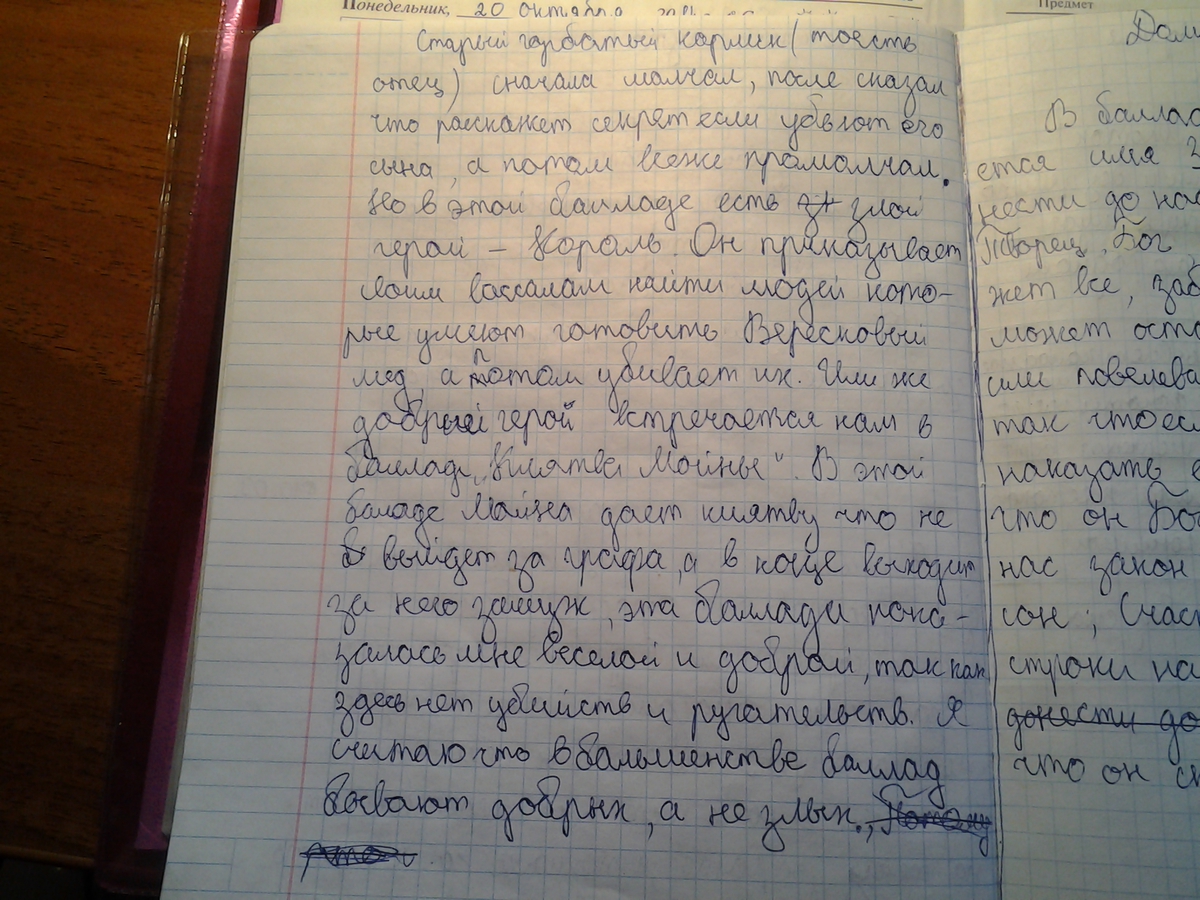 Понедельник, 20 октября
Предмет
Старый горбатый кармик (тоесть
отец) сначала молчал, после сказал
что расскажет секрет если убьют его
сына, а потом всеже промолчал.
Но в этой балладе есть злой
герой – Король. Он приказывает
своим вассалам найти людей кото-
рые умеют готовить Вересковый
мед, а потом убивает их. Или же
добрый герой встречается нам в
балладе „Клятва Мойны". В этой
баладе Мойна дает клятву что не
выйдет за графа, а в конце выходит
за него замуж, эта баллада пока-
залась мне веселой и доброй, так как
здесь нет убийств и ругательств. Я
считаю что в большенстве баллад
бывают добрых, а не злых.
В баллад
ется имя
нести до нас
Творец, Бог
жет все, заб
может оста
или повелева
так что есл
наказать
что он Бог
нас закон
сон; Счаст
строки на
донести до
что он